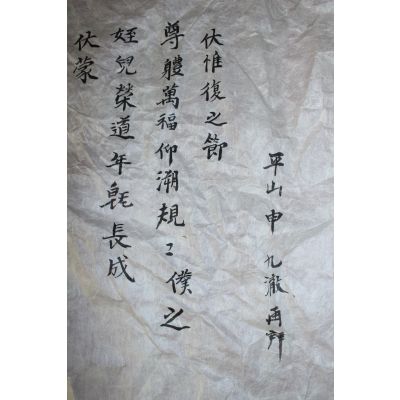 平山申 九澈 再拜
伏惟復之節
尊體萬福仰溯規〻僕之
姪兒榮道年旣長成
伏蒙